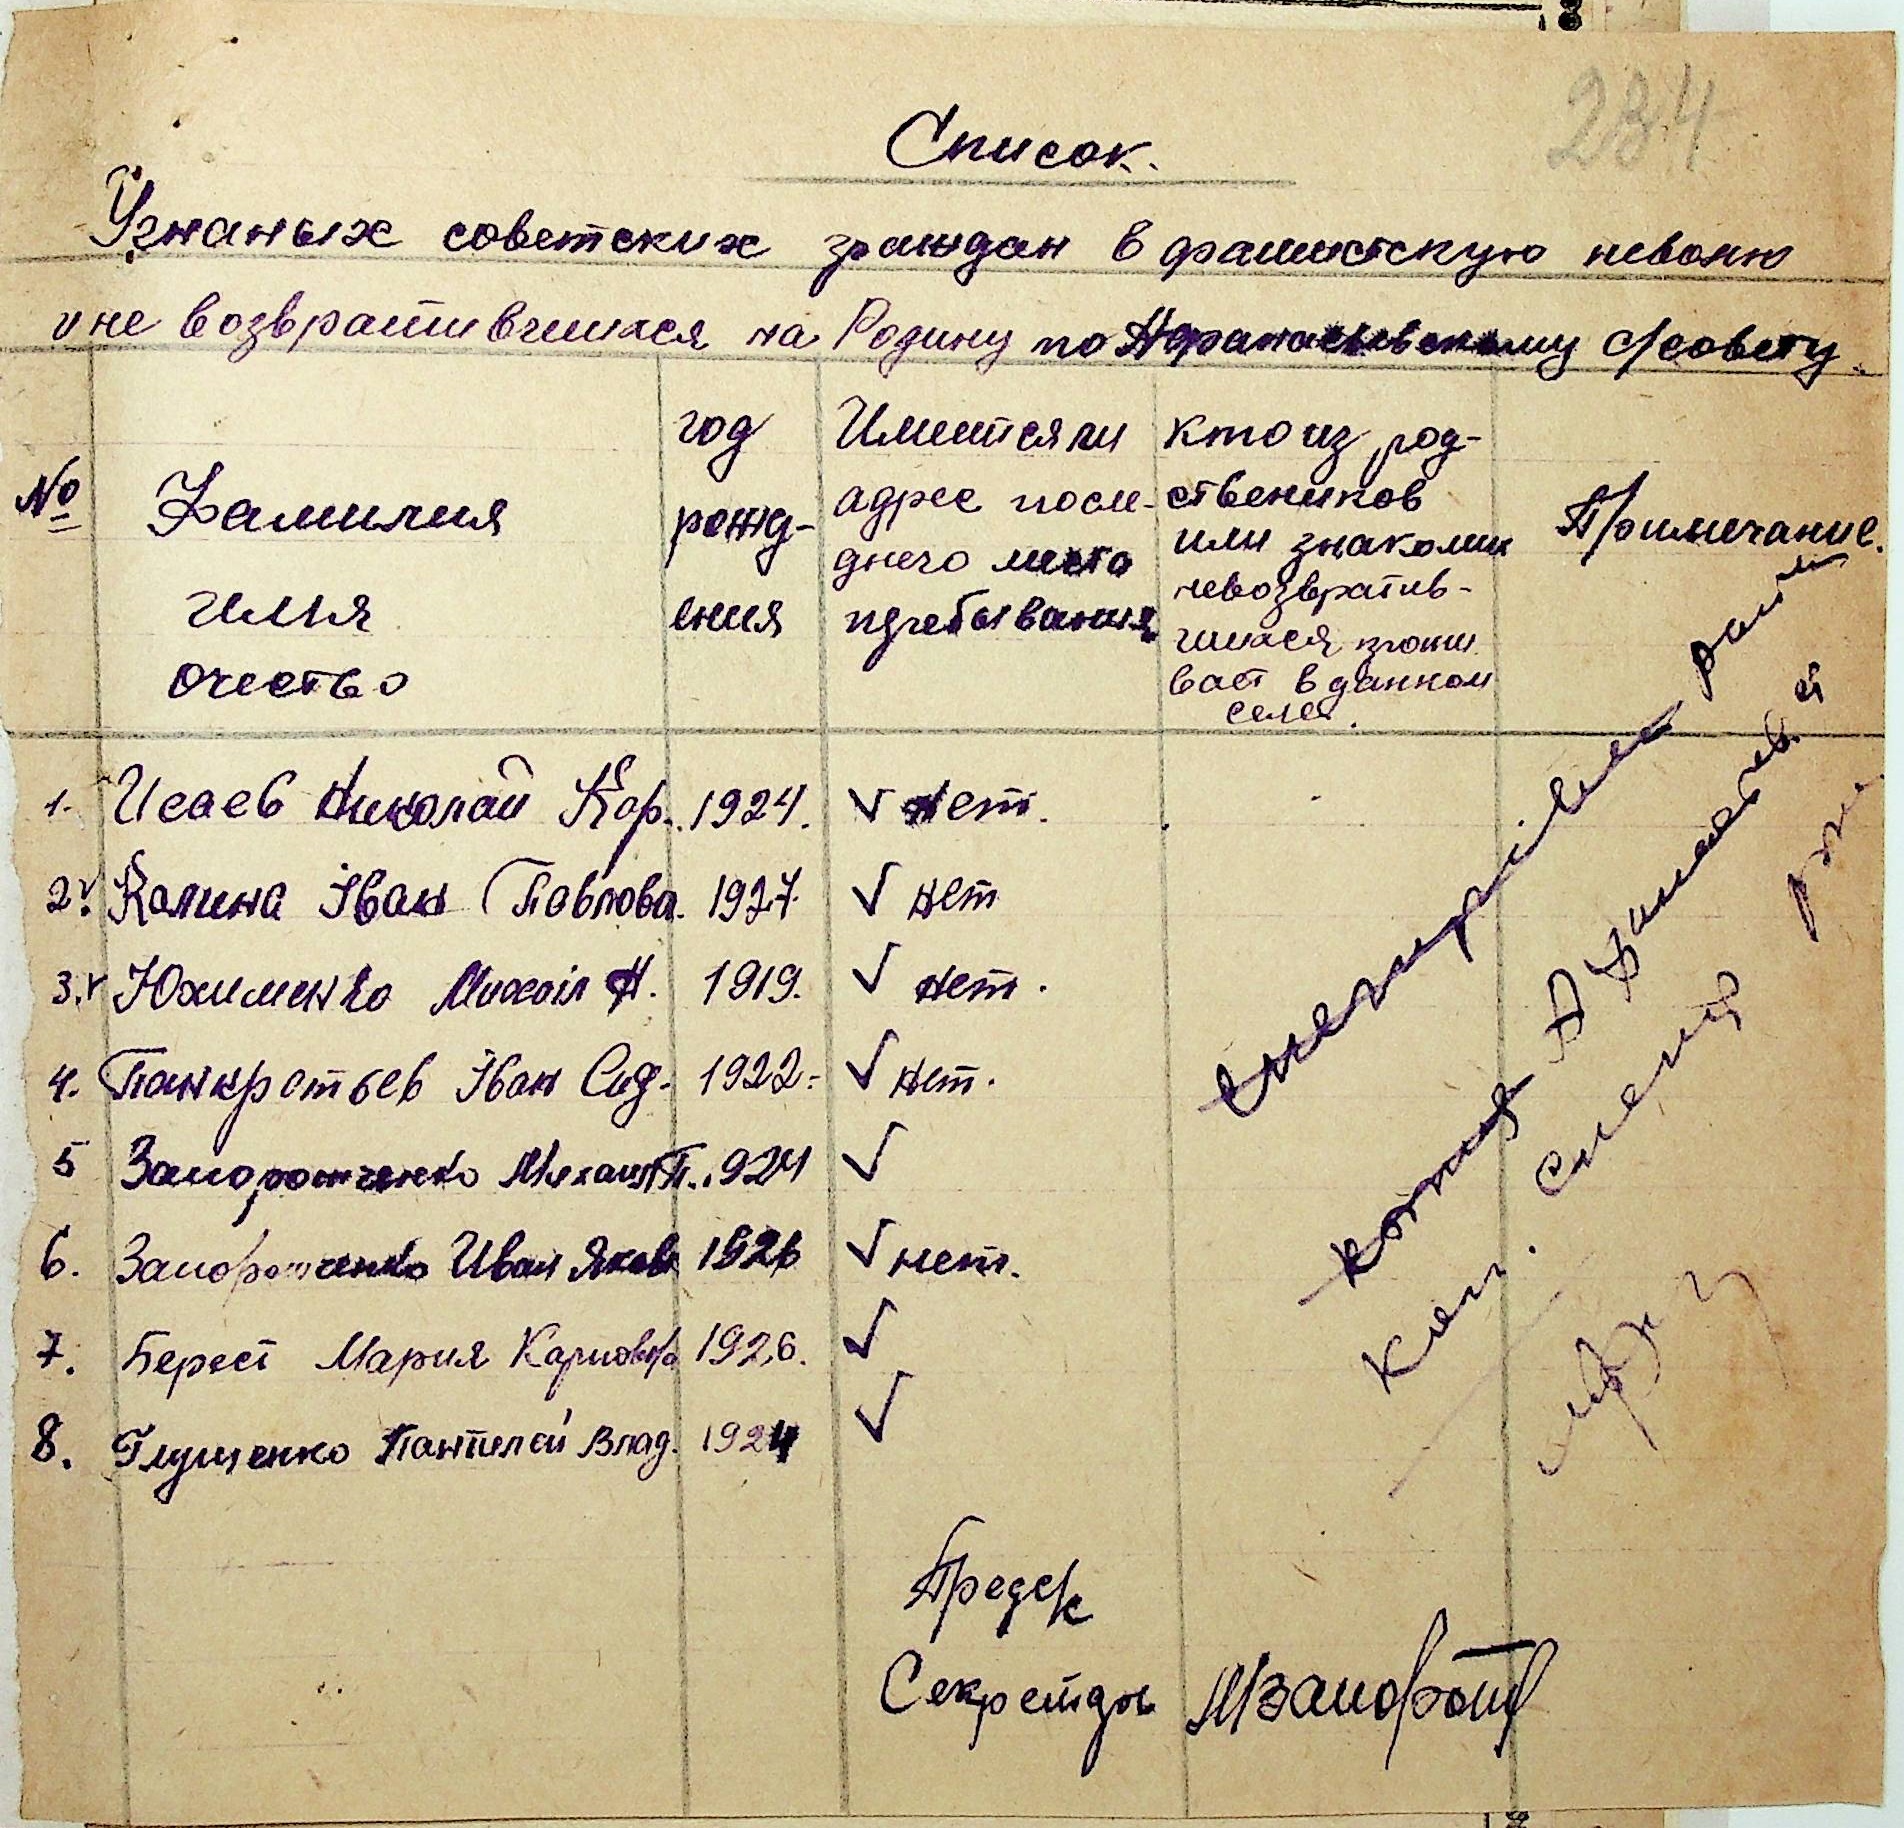 234
Список.
Угнаных советских граждан в фашистскую неволю
и не возвратившихся на Родину по Афанасьевскому С/совету.
№
Фамилия
имя
очество
год
рожд-
ения
Имеится ли
адрес после-
днего места
пребывания
кто из род-
ствеников
или знакомих
невозвратив-
шихся прожи
вает в данном
селе.
Примечание.
1. Исаев Николай Кор. 1924. √ нет.
2. Калина Іван Павлова. 1927. √ нет
3. Юхименко Михаіл Н. 1919. √ нет.
4. Панкратьев Іван Сид. 1922. √ нет.
5 Запорожченко Михаил П. 1924 √
6. Запорожченко Иван Яков 1926 √ нет.
7. Берест Мария Карповна 1926. √
8. Глущенко Пантелей Влад. 1924 √
Пред с/с
Секретарь